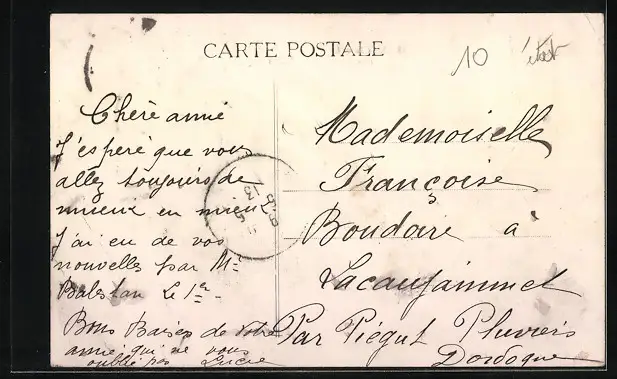 CARTE POSTALE
10
Chère amie
J'espère que vous
allez toujours de
mieux en mieux
J'ai eu de vos
nouvelles par Mr
Balestan Le 1er
Bons Baisers de votre
amie qui ne vous
oublie pas Lucie
Mademoiselle
Françoise
Boudaire à
Par Piégut Pluviers
Dordogne